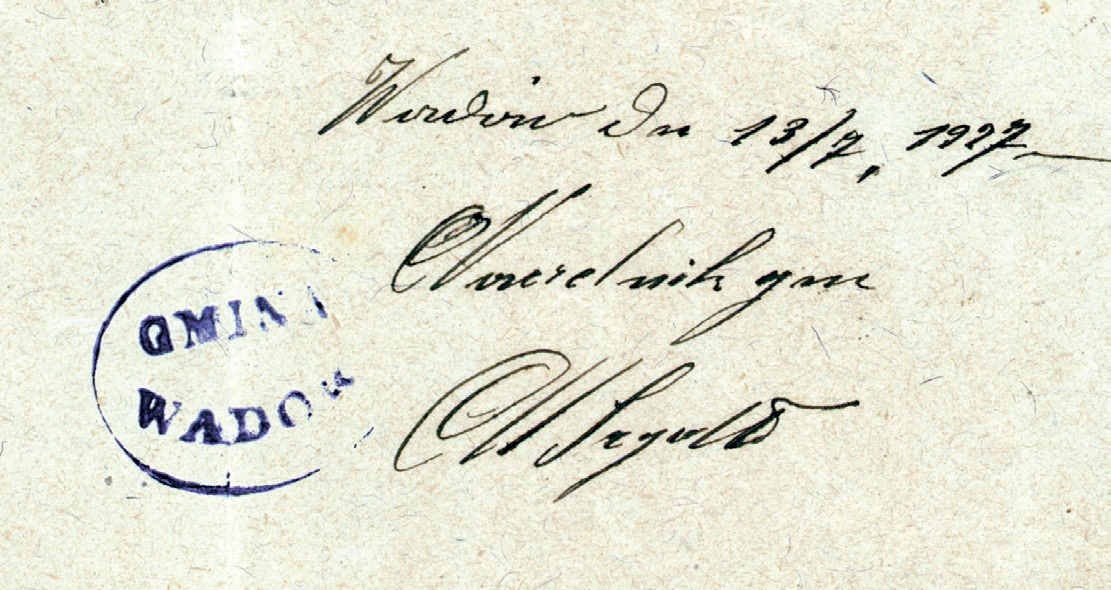 Wadów dn 13/7, 1927
Naczelnik gm
GMINA
WADOW